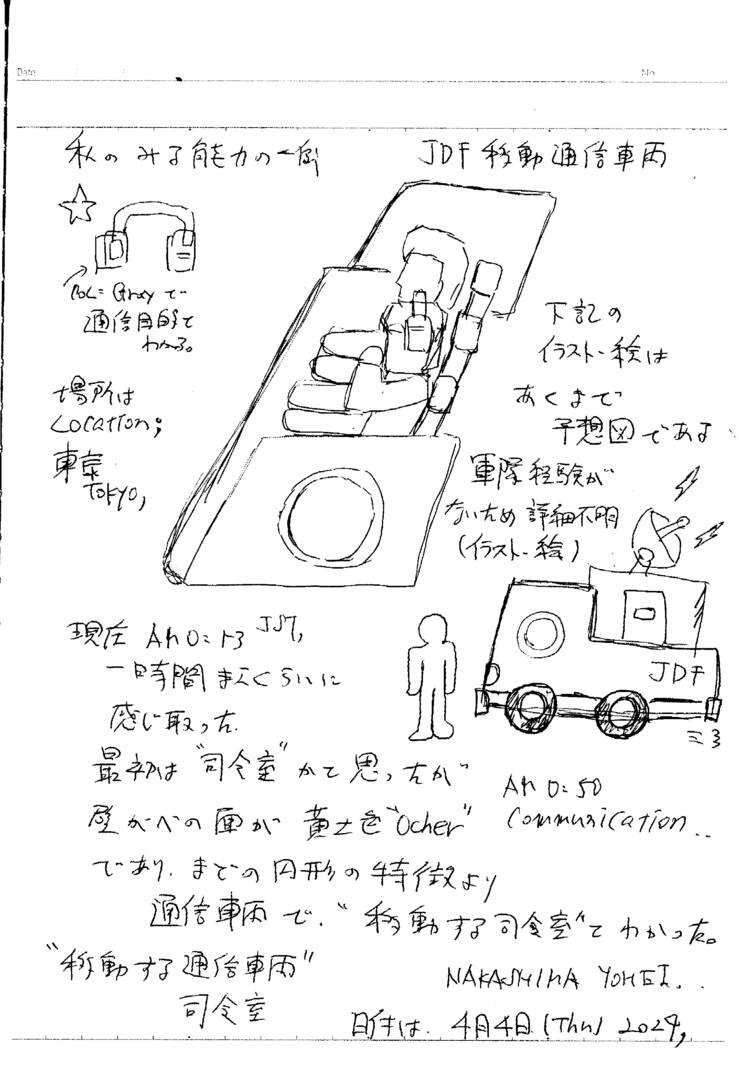 Date
No
私のみる能力の一例
JDF 移動通信車両
CoL=Grayで
通信目的と
わかる。
下記の
イラスト・絵は
あくまで
予想図である
場所は
Location;
東京
TOKYO,
軍隊経験が
ないため 詳細不明
(イラスト・絵)
JDF
現在 AM 0:13 JST,
一時間まえくらいに
感じ取った
最初は"司令室"かと思ったが
壁かべの面が 黄土色"Ocher"
であり、まどの円形の特徴より
通信車両で、"移動する司令室"とわかった。
AM 0:50
Communication..
"移動する通信車両"
司令室
NAKASHIMA YOHEI..
日付は、4月4日(Thu) 2024,